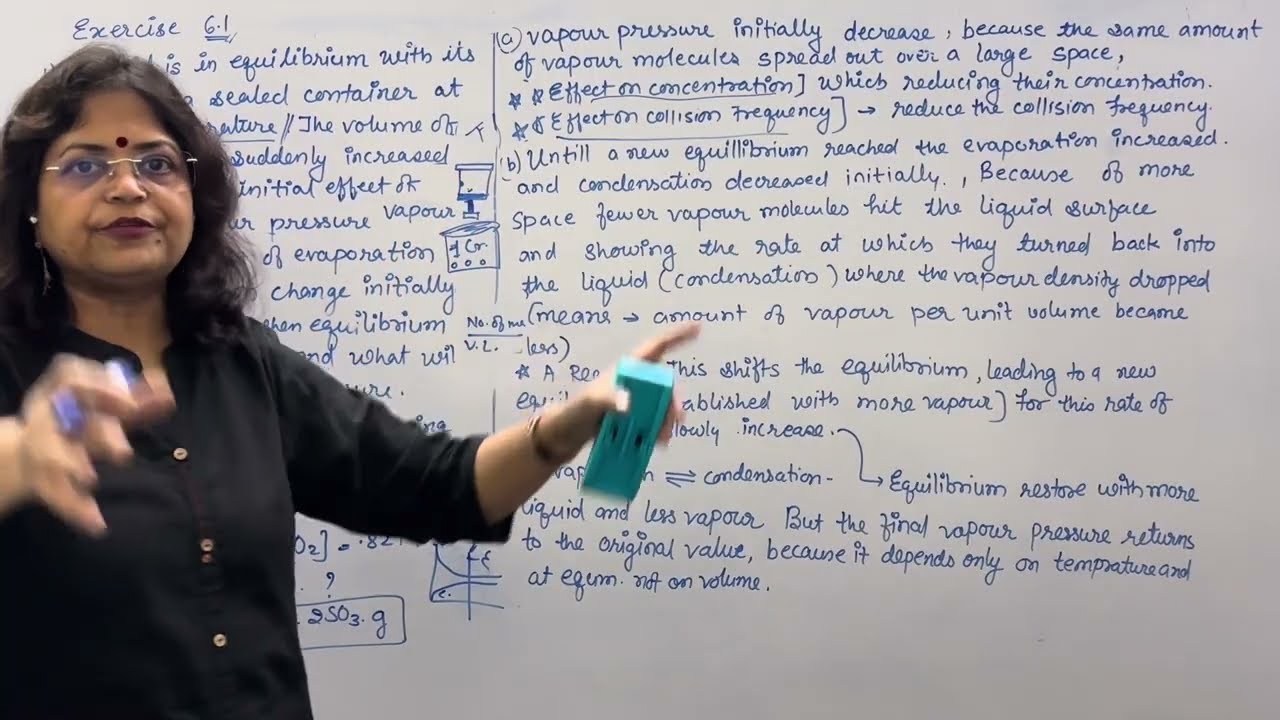 Exercise 6.1
is in equilibrium with its
sealed container at
The volume of
suddenly increased
initial effect of
pressure vapour
of evaporation
change initially
when equilibrium
and what will
No. of
V.L.
O₂] = .82
?
2SO₃.g
(a) vapour pressure initially decrease, because the same amount
of vapour molecules spread out over a large space,
Effect on concentration] which reducing their concentration.
[Effect on collision Frequency] → reduce the collision frequency.
(b) Untill a new equillibrium reached the evaporation increased.
and condensation decreased initially., Because of more
space fewer vapour molecules hit the liquid surface
and showing the rate at which they turned back into
the liquid (condensation) where the vapour density dropped
(means → amount of vapour per unit volume became
less)
A this shifts the equilibrium, leading to a new
with more vapour] for this rate of
slowly increase.
⇌ condensation-
Equilibrium restore with more
liquid and less vapour But the final vapour pressure returns
to the original value, because it depends only on temprature and
at eqm. not on volume.